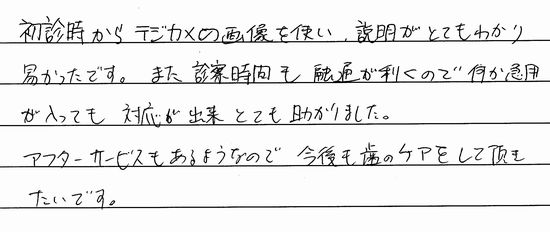 初診時から デジカメの画像を使い、説明がとてもわかり
易かったです。また 診察時間も 融通が利くので 何か急用
が入っても 対応が出来 とても助かりました。
アフターサービスもあるようなので 今後も歯のケアをして頂き
たいです。